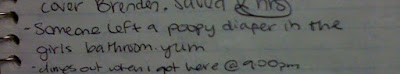 cover Brenden. Sauud 4 hrs
- Someone left a poopy diaper in the
girls bathroom. yum
- chimps out when i got here @ 9:00pm